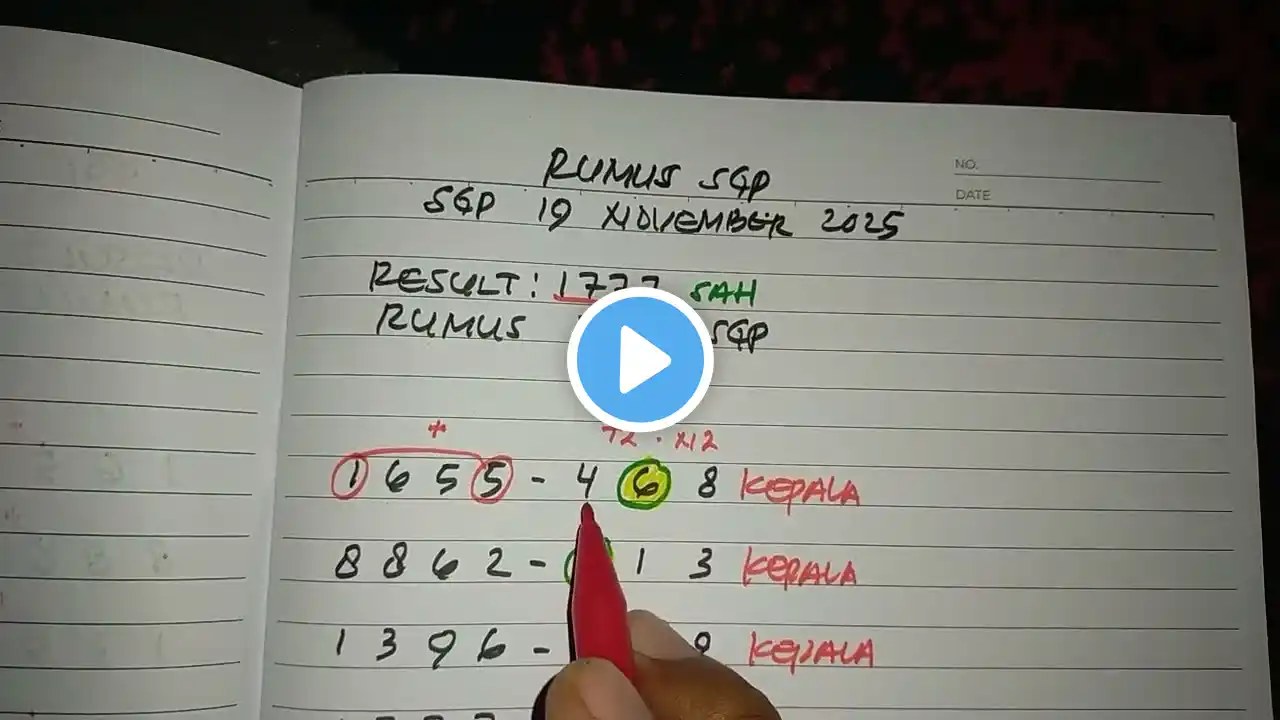 NO.
DATE
RUMUS SGP
SGP 19 NOVEMBER 2025
RESULT: 1777 SAH
RUMUS SGP
+
+2 · x12
1 6 5 5 - 4 6 8 KEPALA
8 8 6 2 - 1 3 KEPALA
1 3 9 6 - 9 KEPALA